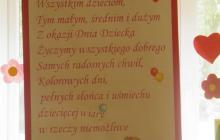 Wszystkim dzieciom,
Tym małym, średnim i dużym
Z okazji Dnia Dziecka
Życzymy wszystkiego dobrego
Samych radosnych chwil,
Kolorowych dni,
pełnych słońca i uśmiechu
dziecięcej wiary
w rzeczy niemożliwe